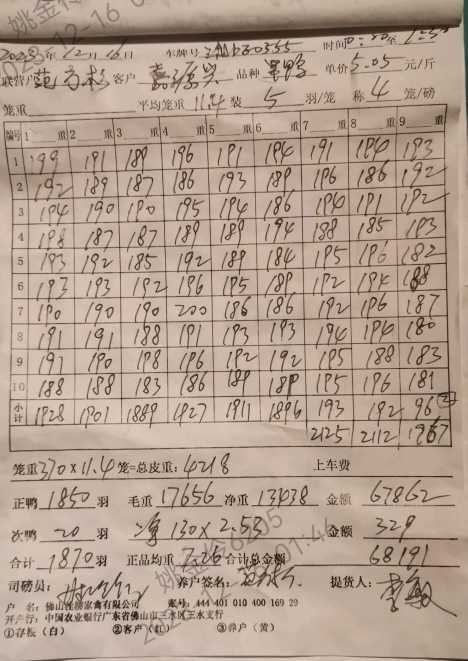 2023年12月16日 车牌号 时间 至
联营户 客户 嘉源兴 品种 黑鸭 单价 5.05 元/斤
笼重 平均笼重 11.4 装 5 羽/笼 称 4 笼/磅
编号 1 重 2 重 3 重 4 重 5 重 6 重 7 重 8 重 9 重
1 199 191 189 196 191 194 191 194 193
2 192 189 187 186 193 189 196 186 192
3 194 190 190 195 194 186 194 191 192
4 198 187 187 189 189 194 188 185 193
5 193 192 185 192 189 184 195 196 182
6 193 193 192 196 195 189 192 194 188
7 190 190 190 200 186 186 192 196 187
8 191 191 188 191 193 193 194 190 180
9 190 198 196 192 192 195 188 183
10 188 188 183 186 189 189 195 196 181
小计 1928 1901 1889 1927 1911 1896 193 192 96 ②
2125 2112 1967
笼重 370×11.4 笼=总皮重: 4218 上车费
正鸭 1850 羽 毛重 17656 净重 13438 金额 67862
次鸭 20 羽 净 130×2.53 金额 329
合计 1870 羽 正品均重 7.26 合计总金额 68191
司磅员: 养户签名: 提货人:
户 名: 佛山 家禽有限公司 账号: 444 401 010 400 169 29
开户行: 中国农业银行广东省佛山市三水区三水支行
①存根（白） ②客户（红） ③养户（黄）